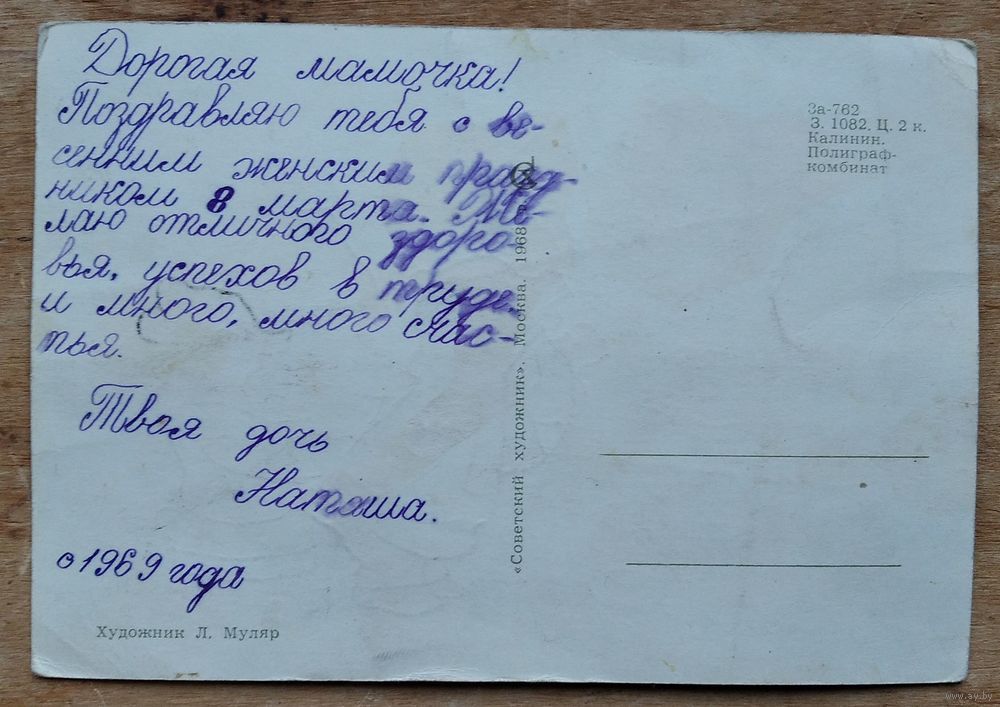 Дорогая мамочка!
Поздравляю тебя с ве-
сенним женским празд-
ником 8 марта. Же-
лаю отличного здоро-
вья, успехов в труде.
и много, много счас-
тья.
Твоя дочь
Наташа.
с 1969 года
Художник Л. Муляр
«Советский художник». Москва. 1968 г.
За-762
З. 1082. Ц. 2 к.
Калинин.
Полиграф-
комбинат
www.ay.by